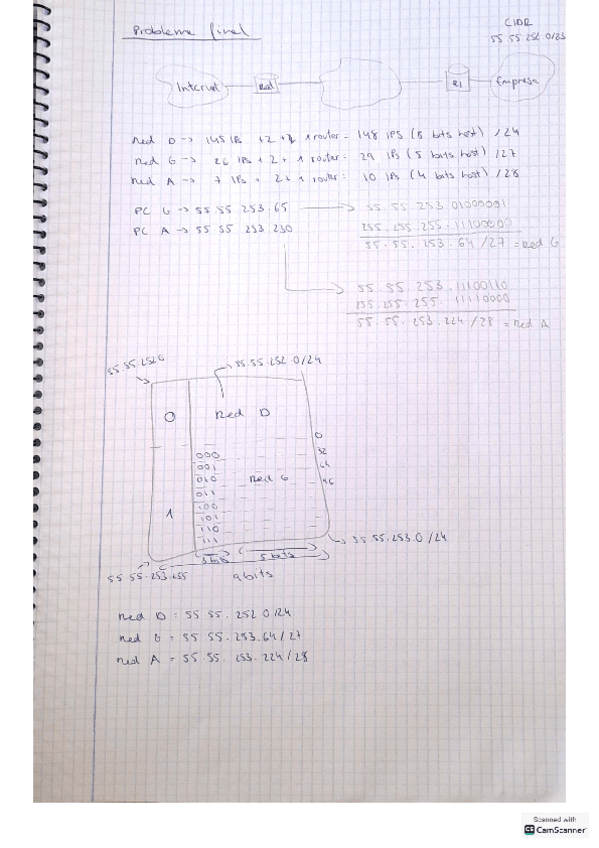 Problema final
CIDR
55.55.252.0/23
Internet
Red
R1
Empresa
Red D -> 145 IPs + 2 + 1 router = 148 IPs (8 bits host) /24
Red G -> 26 IPs + 2 + 1 router: 29 IPs (5 bits host) /27
Red A -> 7 IPs + 2 + 1 router: 10 IPs (4 bits host) /28
PC G -> 55.55.253.65 -> 55.55.253.01000001
PC A -> 55.55.253.230
255.255.255.11100000
55.55.253.64/27 = Red G
55.55.253.11100110
255.255.255.11110000
55.55.253.224/28 = Red A
55.55.252.0
55.55.252.0/24
0
Red D
0
000
32
001
64
010
Red G
96
011
1
100
101
110
111
55.55.253.0/24
5 bits
55.55.253.255
9 bits
Red D : 55.55.252.0/24
Red G = 55.55.253.64/27
Red A = 55.55.253.224/28
Scanned with
CS CamScanner